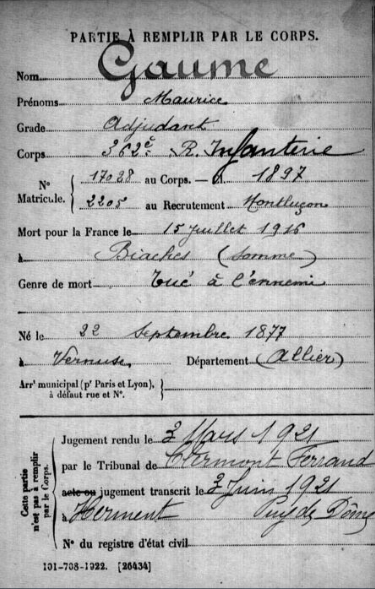 PARTIE À REMPLIR PAR LE CORPS.
Nom Gaume
Prénoms Maurice
Grade Adjudant
Corps 362e R. Infanterie
N° Matricule. { 17028 au Corps. — Cl. 1897
2205 au Recrutement Montluçon
Mort pour la France le 15 juillet 1916
à Biaches (Somme)
Genre de mort Tué à l'ennemi
Né le 22 Septembre 1877
à Vernusse Département (Allier)
Arrt municipal (pr Paris et Lyon), à défaut rue et N°. {
Cette partie n'est pas à remplir par le Corps.
Jugement rendu le 3 Mars 1921
par le Tribunal de Clermont Ferrand
acte ou jugement transcrit le 3 Juin 1921
à Herment Puy de Dôme
N° du registre d'état civil
101-708-1922. [26434]